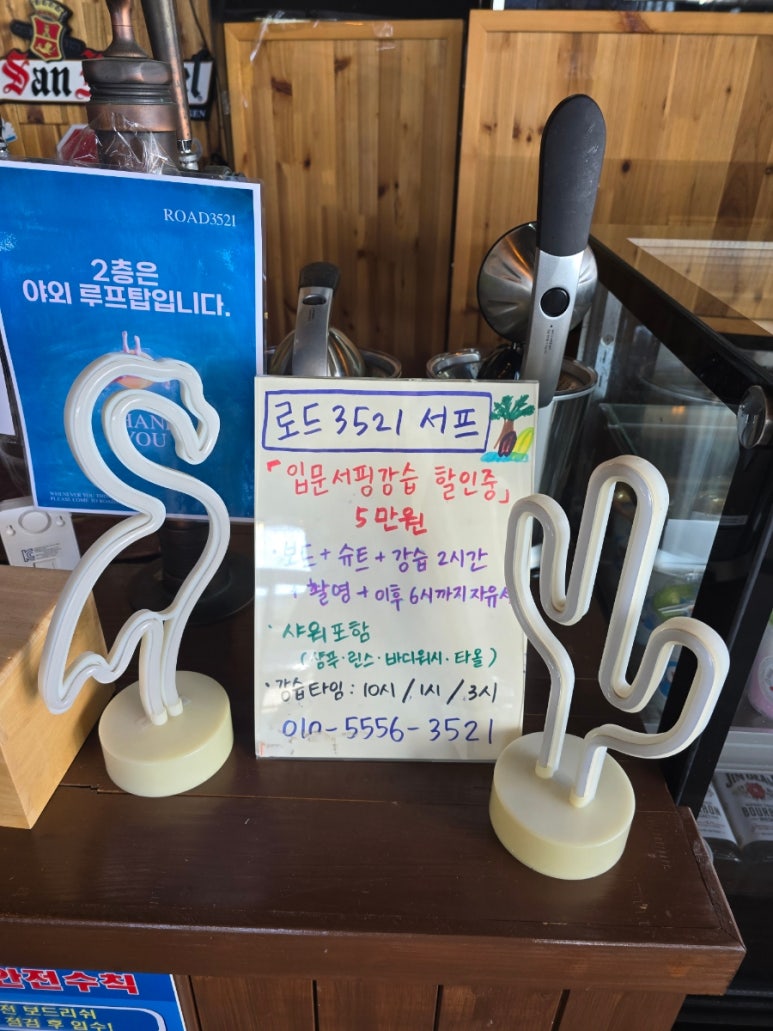 San
ROAD3521
2층은
야외 루프탑입니다.
YOU
로드 3521 서프
「입문서핑강습 할인중」
5만원
· 보드 + 슈트 + 강습 2시간
+ 촬영 + 이후 6시까지 자유
· 샤워포함
(샴푸·린스·바디워시·타올)
· 강습타임 : 10시 / 1시 / 3시
010-5556-3521
JIM BEAM
BOURBON
안전수칙
전 보드리쉬
점검 후 입수!